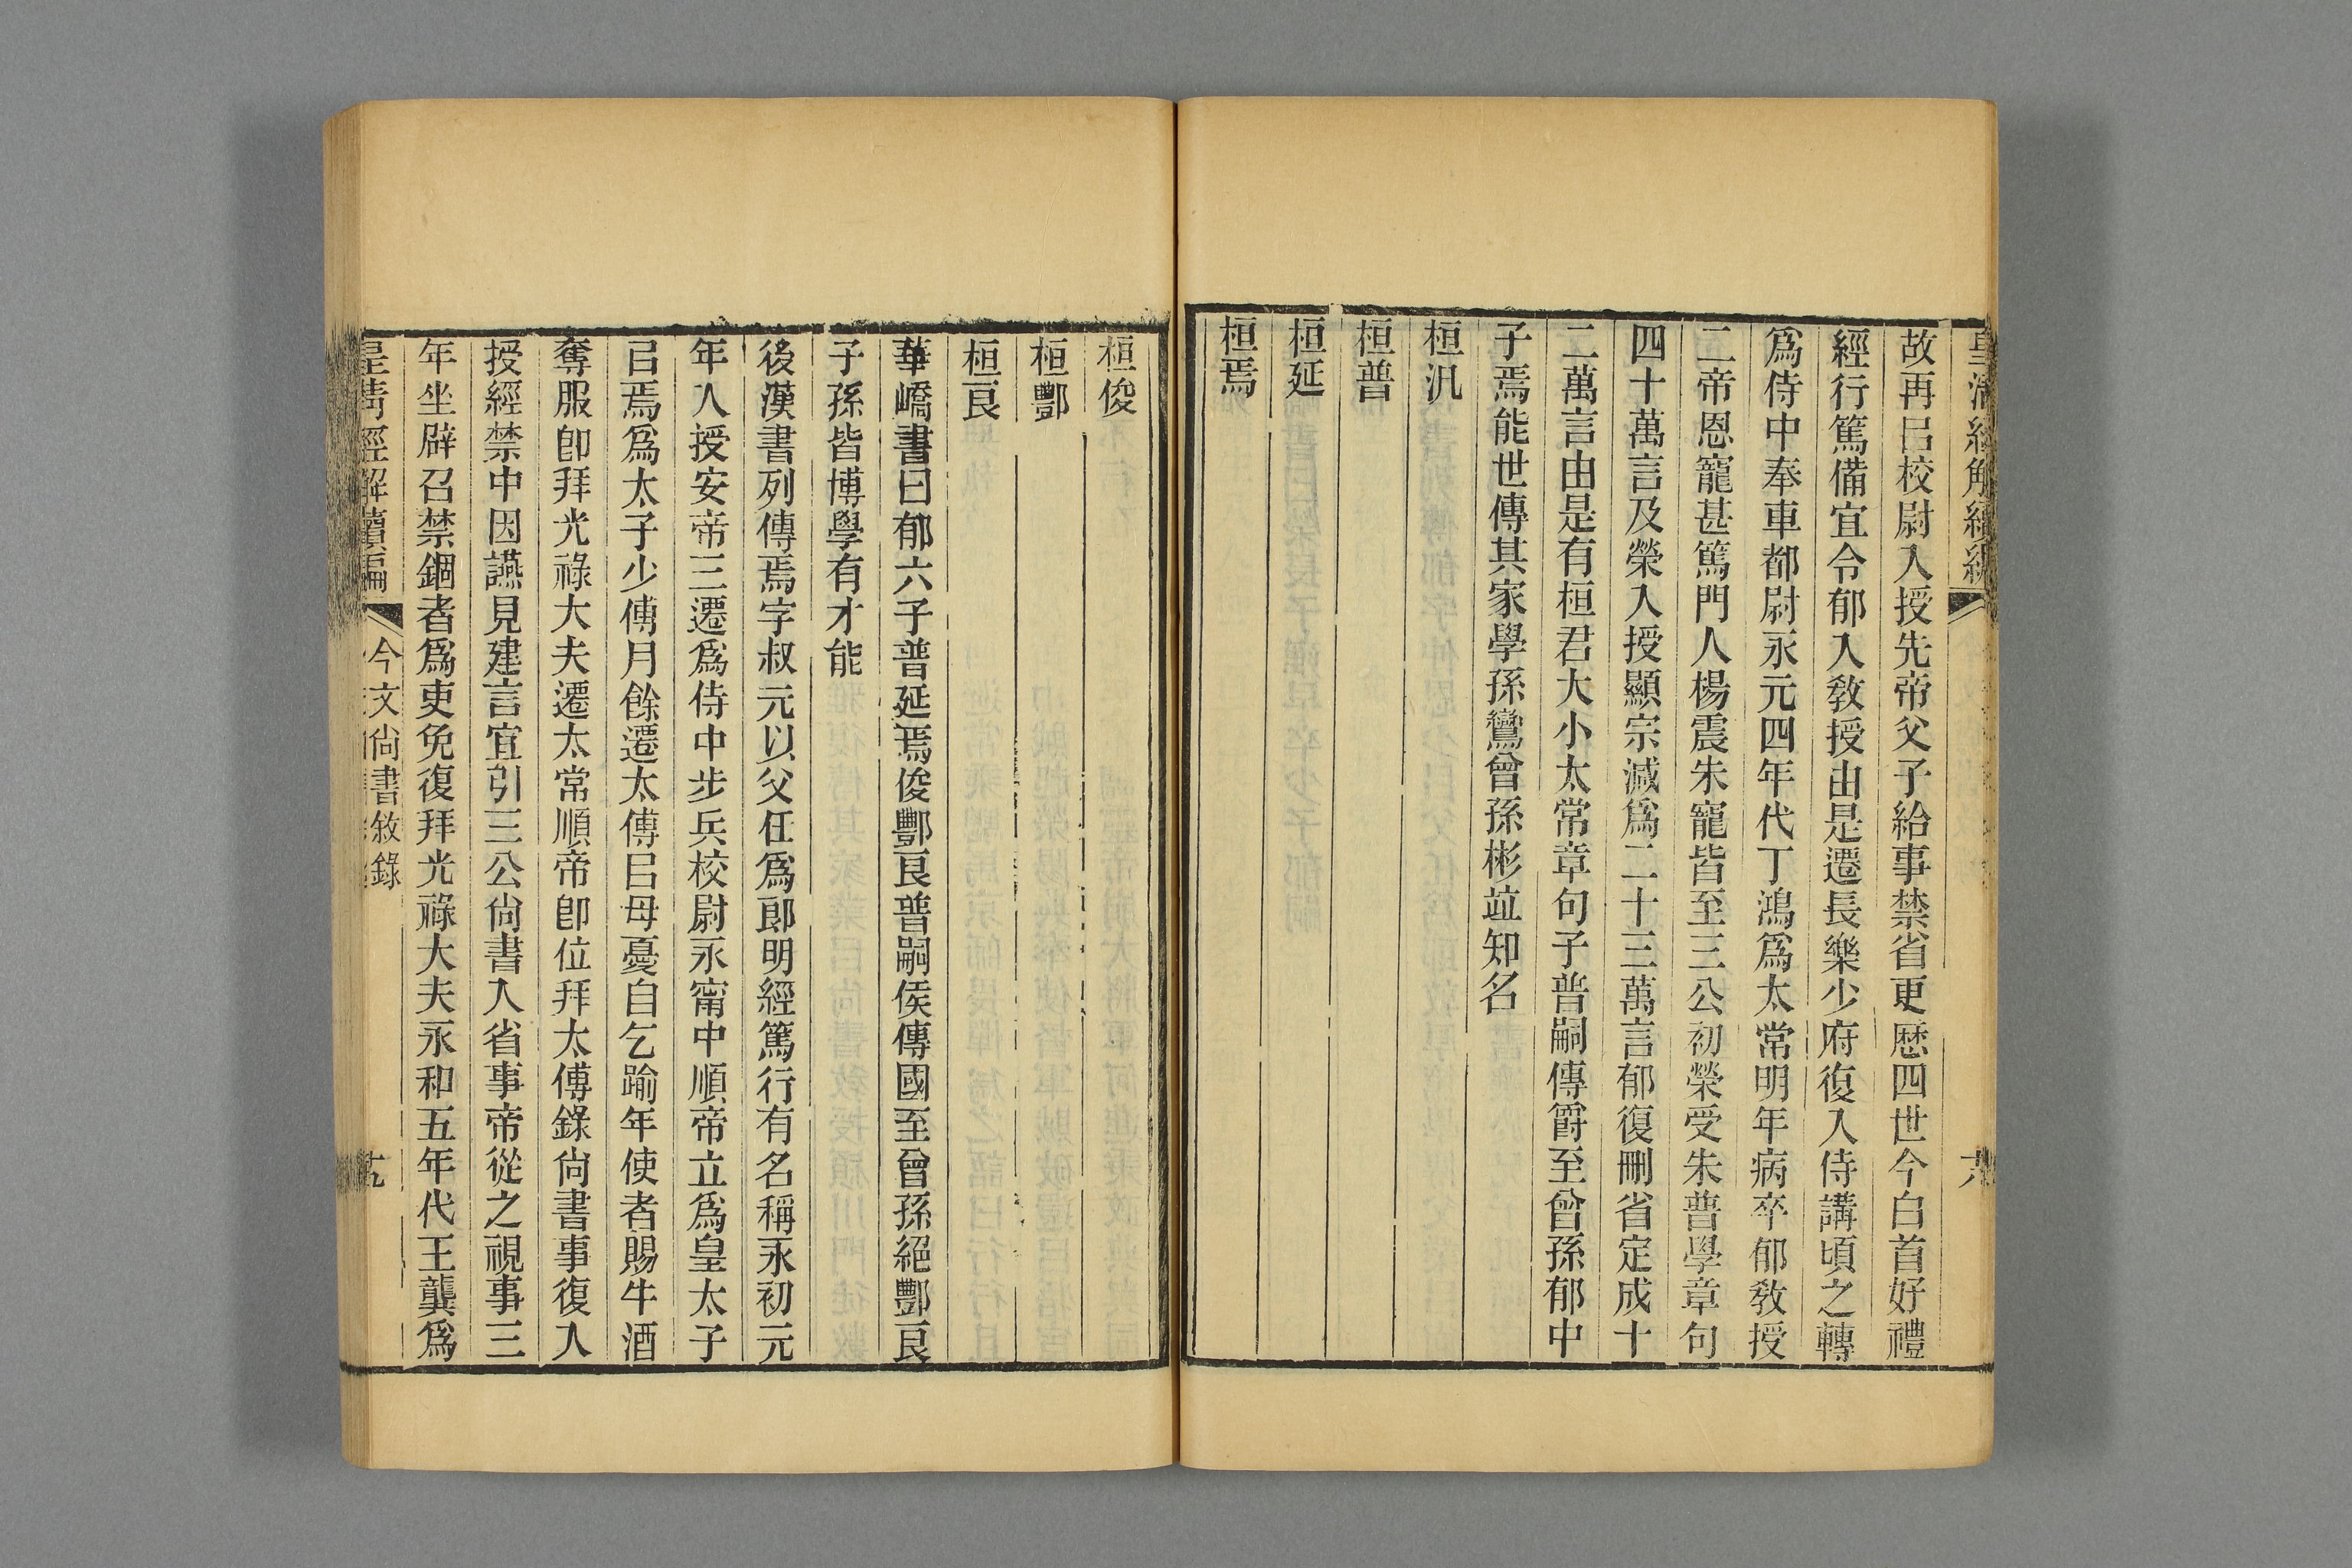 皇清經解續編
六
故再㠯校尉入授先帝父子給事禁省更歷四世今白首好禮
經行篤備宜令郁入敎授由是遷長樂少府復入侍講頃之轉
爲侍中奉車都尉永元四年代丁鴻爲太常明年病卒郁敎授
二帝恩寵甚篤門人楊震朱寵皆至三公初榮受朱普學章句
四十萬言及榮入授顯宗減爲二十三萬言郁復刪省定成十
二萬言由是有桓君大小太常章句子普嗣傳爵至曾孫郁中
子焉能世傳其家學孫鸞曾孫彬竝知名
桓汎
桓普
桓延
桓焉
桓俊
桓酆
桓良
華嶠書曰郁六子普延焉俊酆良普嗣侯傳國至曾孫絕酆良
子孫皆博學有才能
後漢書列傳焉字叔元以父任爲郎明經篤行有名稱永初元
年入授安帝三遷爲侍中步兵校尉永甯中順帝立爲皇太子
㠯焉爲太子少傅月餘遷太傅㠯母憂自乞踰年使者賜牛酒
奪服卽拜光祿大夫遷太常順帝卽位拜太傅錄尙書事復入
授經禁中因讌見建言宜引三公尙書入省事帝從之視事三
年坐辟召禁錮者爲吏免復拜光祿大夫永和五年代王龔爲
皇淸經解續編
今文尙書敘錄